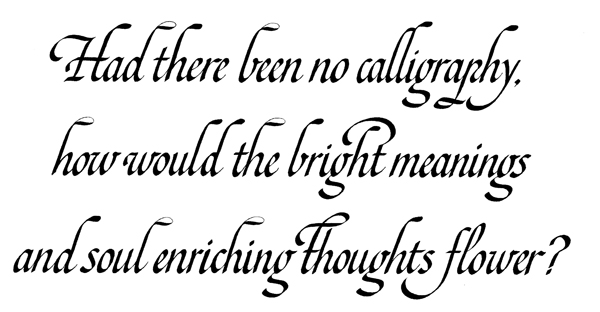 Had there been no calligraphy,
how would the bright meanings
and soul enriching thoughts flower?